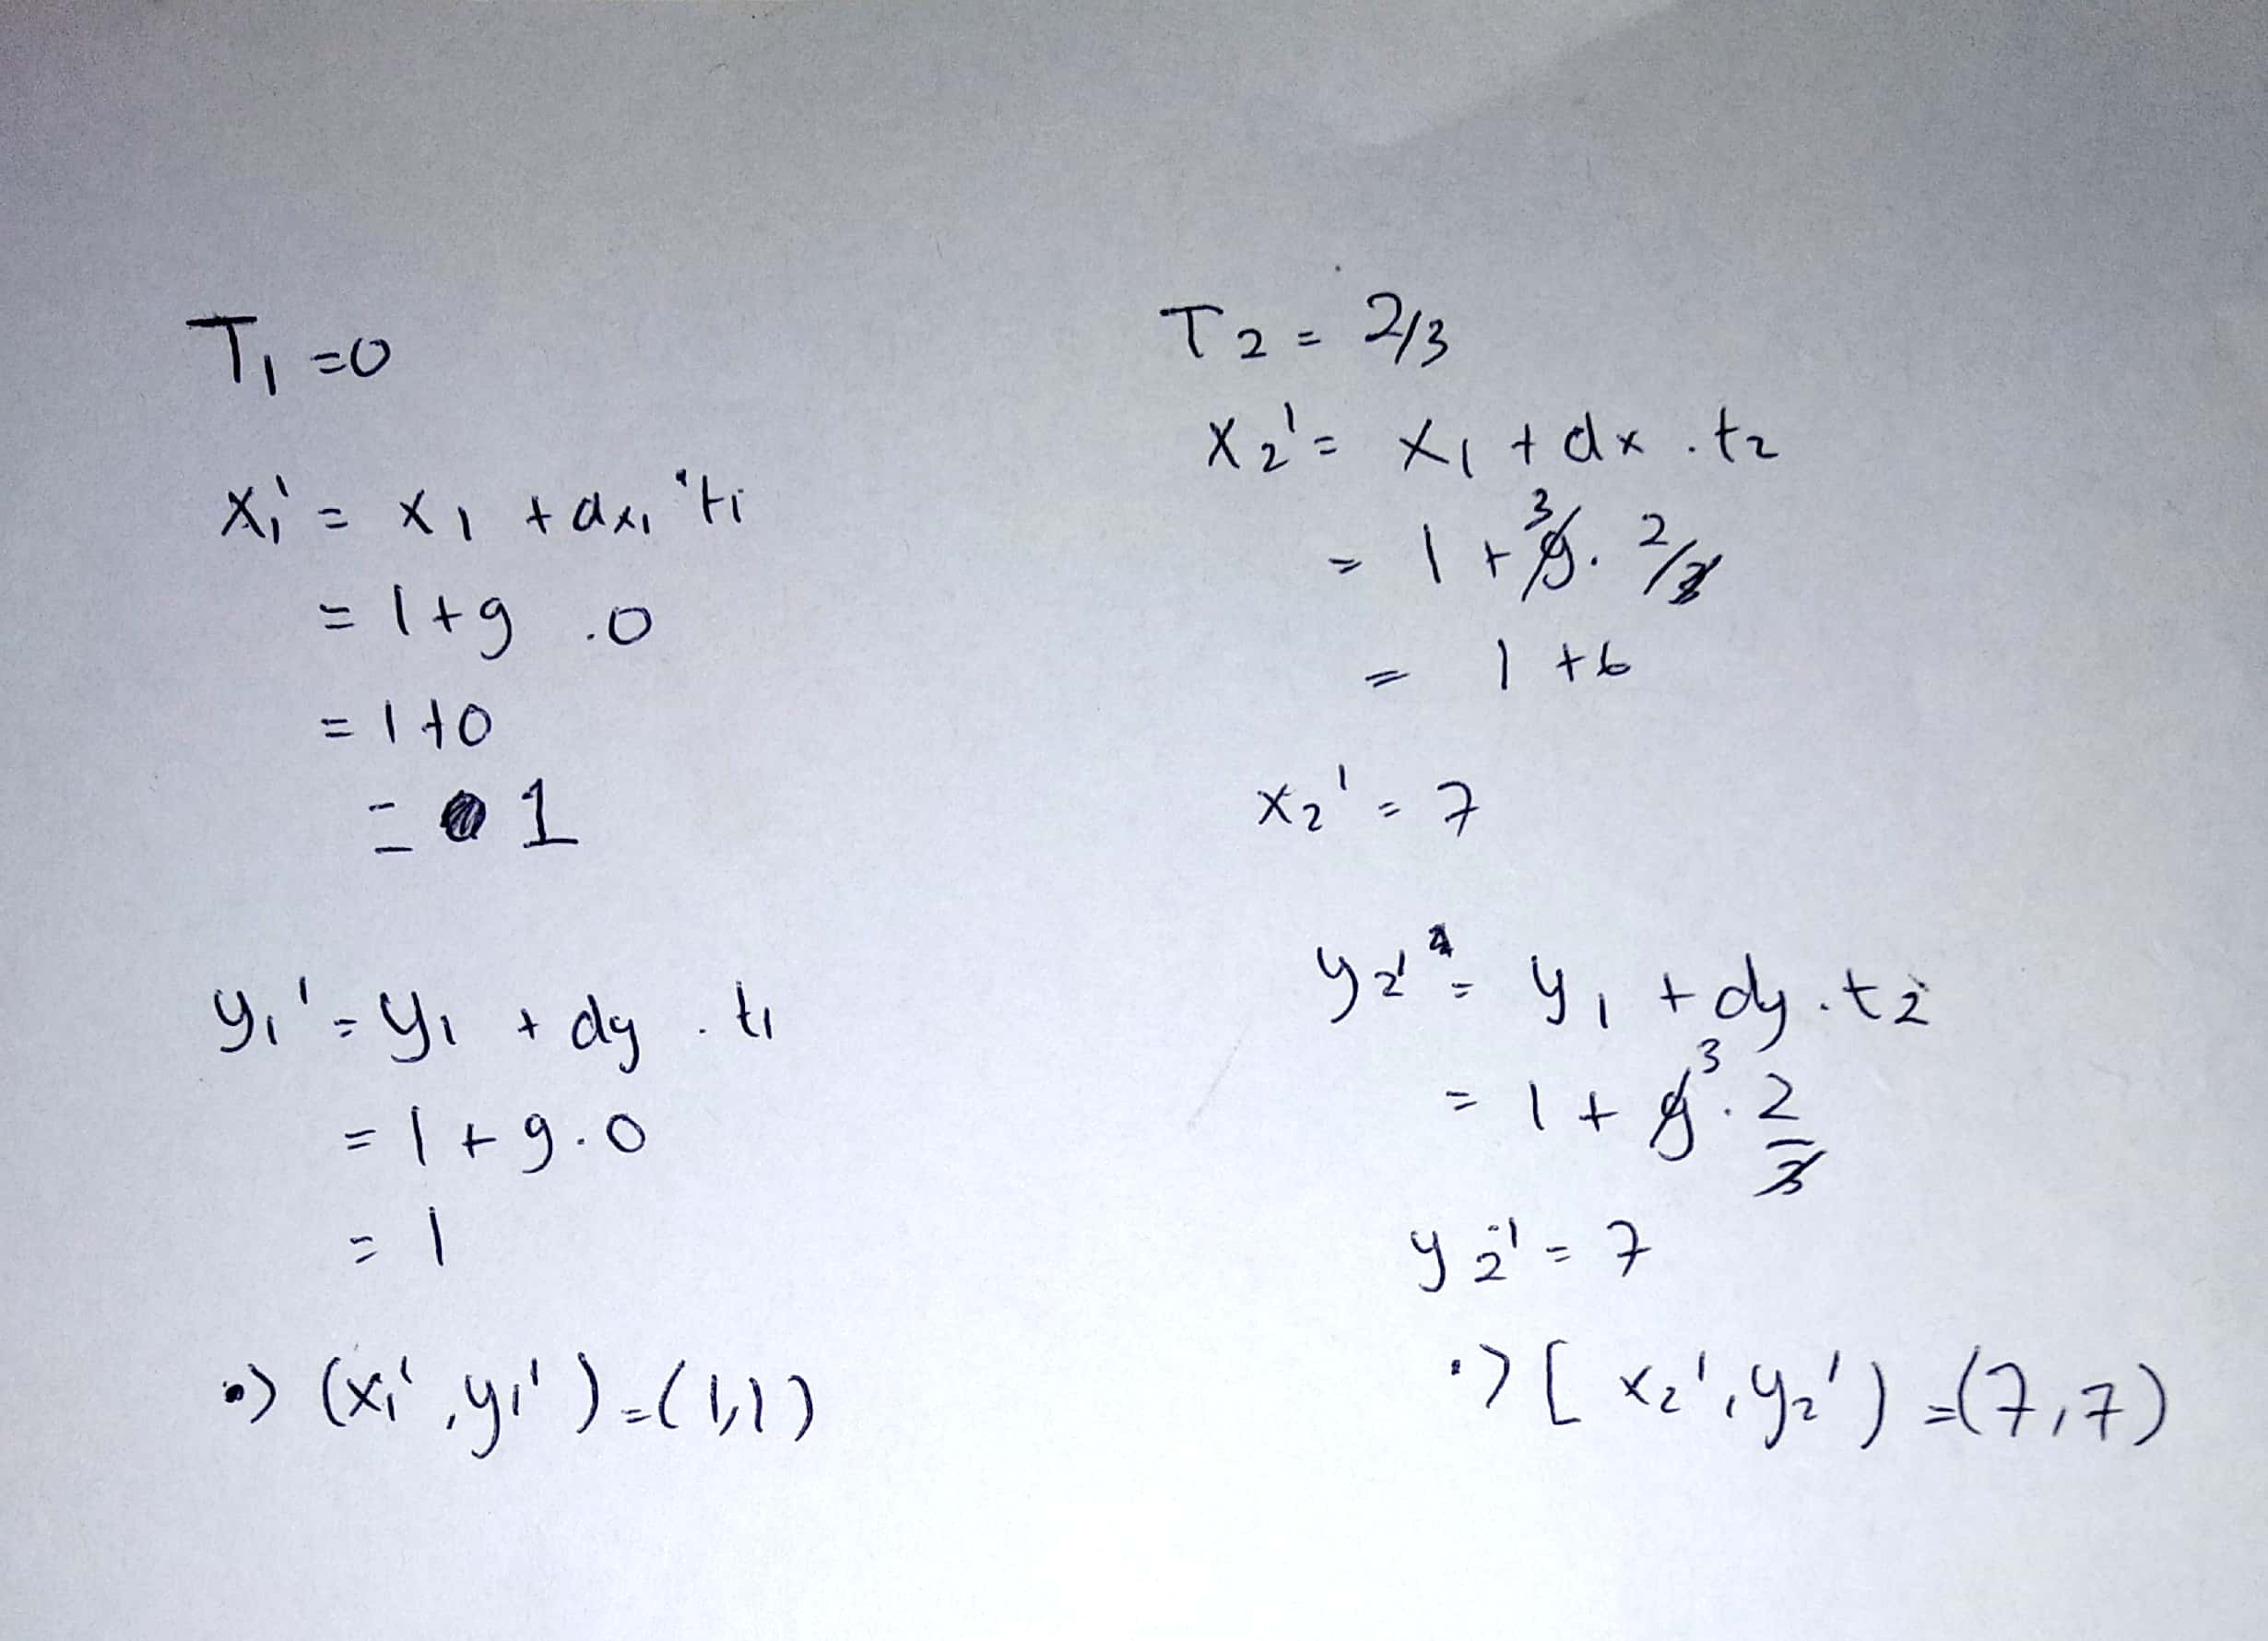 T₁ = 0
x₁' = x₁ + dx₁ · t₁
= 1 + 9 . 0
= 1 + 0
= 1
y₁' = y₁ + dy . t₁
= 1 + 9 . 0
= 1
•) (x₁', y₁') = (1,1)
T₂ = 2/3
x₂' = x₁ + dx . t₂
3
= 1 + 9 . 2/3
= 1 + 6
x₂' = 7
y₂' = y₁ + dy . t₂
3
= 1 + 9 . 2/3
y₂' = 7
•) [ x₂', y₂' ) = (7,7)